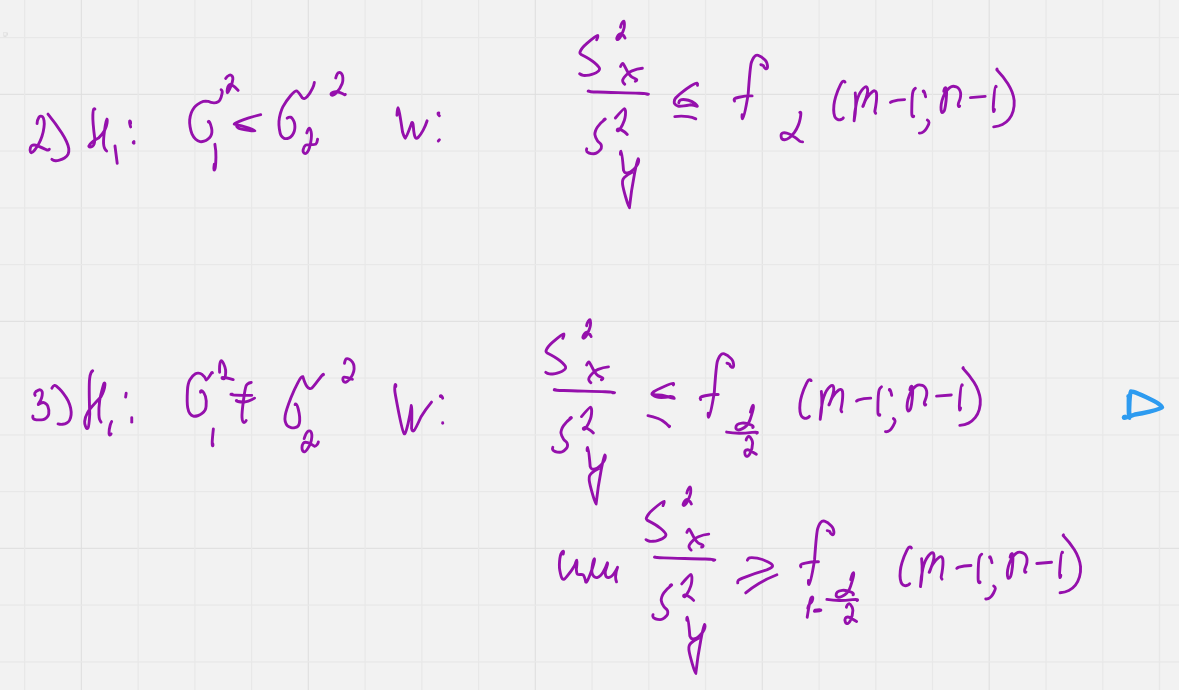 2) H₁: σ₁² < σ₂² W: S²ₓ / S²ᵧ ≤ f_α (m-1; n-1)
3) H₁: σ₁² ≠ σ₂² W: S²ₓ / S²ᵧ ≤ f_{α/2} (m-1; n-1)
или S²ₓ / S²ᵧ ≥ f_{1-α/2} (m-1; n-1)